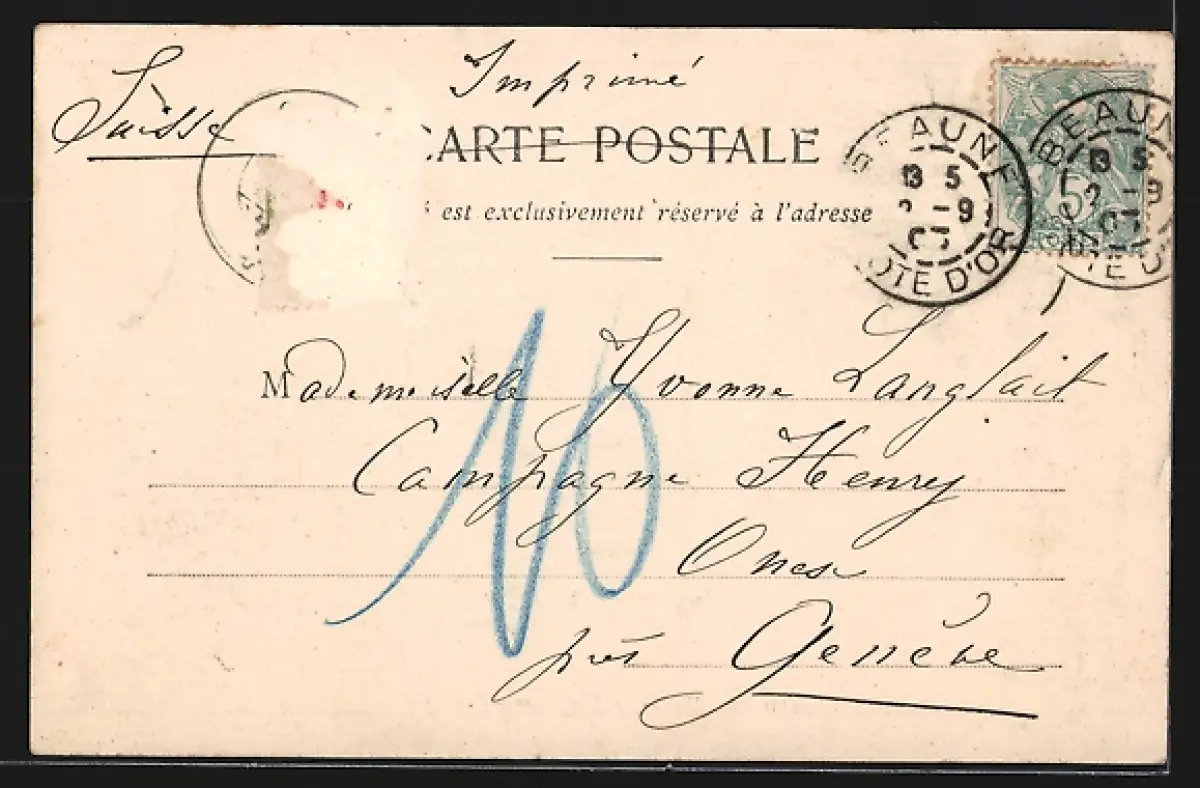 Imprimé
Suisse
CARTE POSTALE
est exclusivement réservé à l'adresse
BEAUNE
13 5
2 -9
03
COTE D'OR
BEAUNE
13 5
2 -9
5
Mademoiselle Yvonne Langlait
Campagne Henry
Onex
près Genève
10